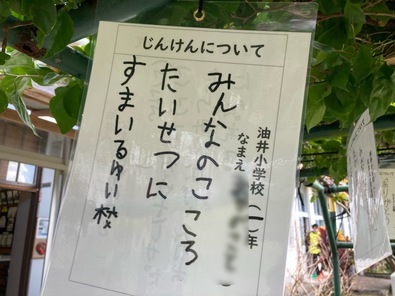 じんけんについて
油井小学校（一）年
なまえ
みんなのこころ
たいせつに
すまいるゆい校